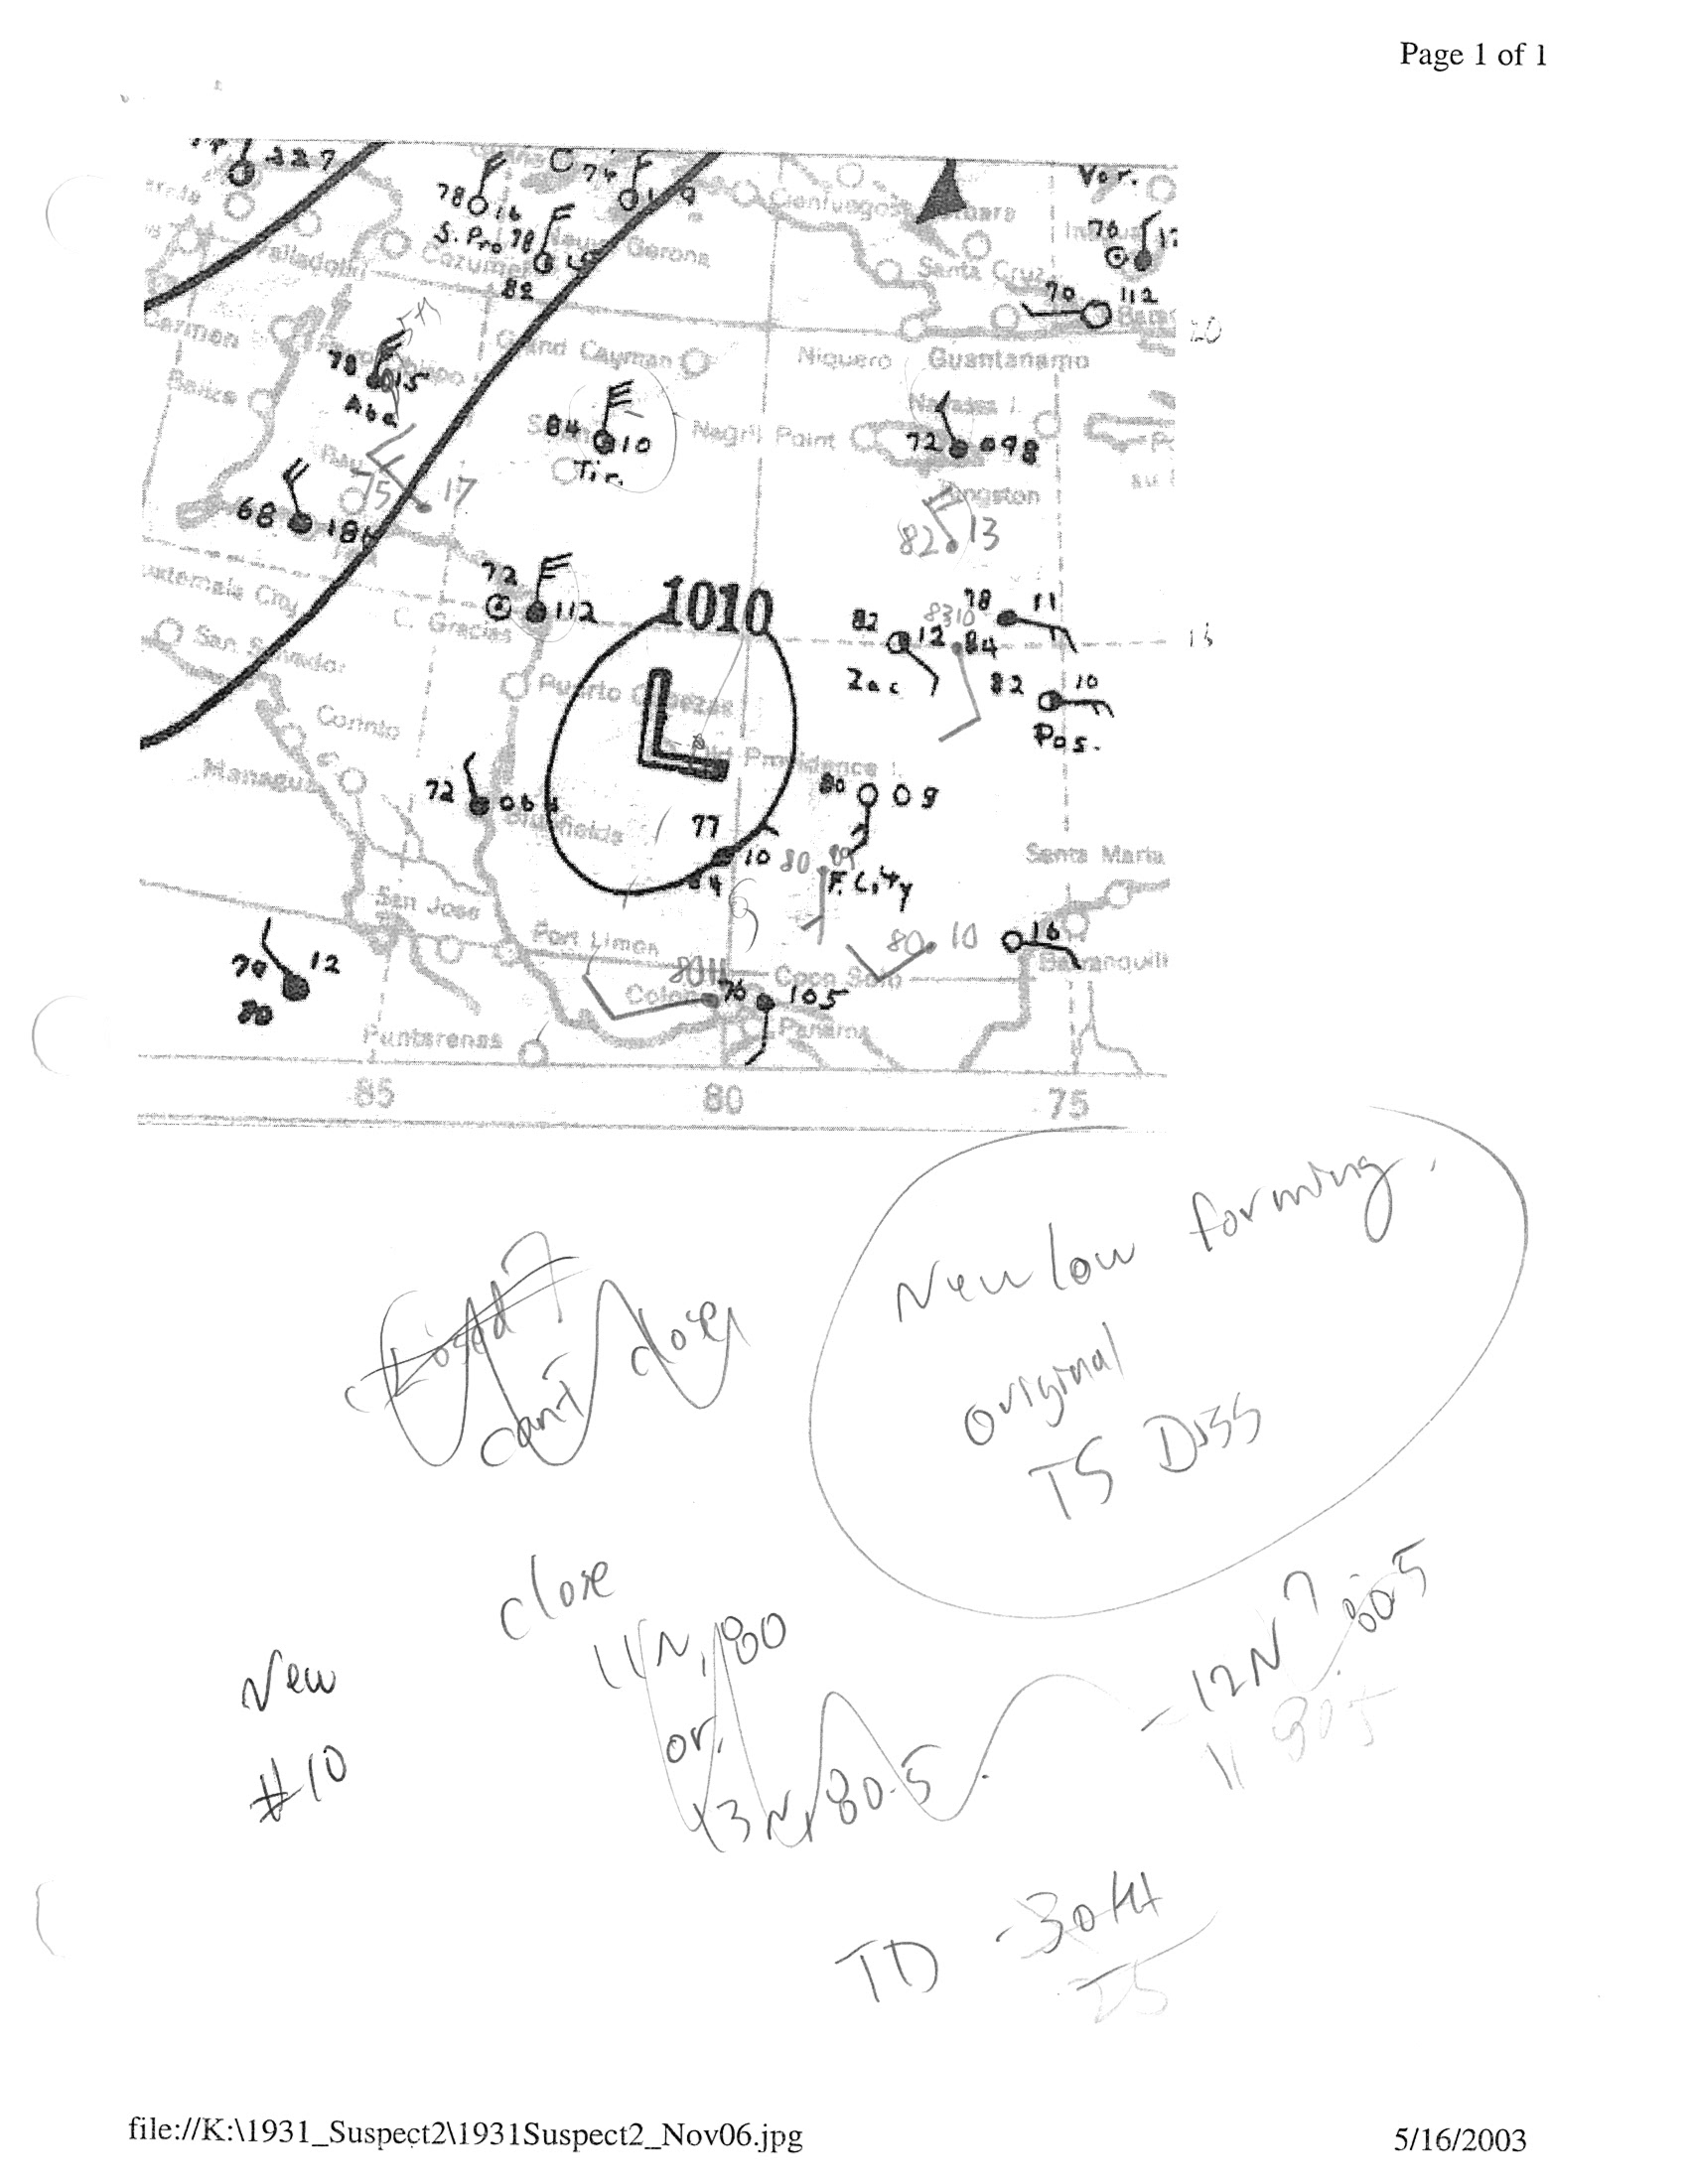 Page 1 of 1
227
78 16
S. Pro
78
82
74
Cienfuegos
Vor.
76
70 112
Nueva Gerona
Cozumel
Valladolid
Santa Cruz
20
Carmen
Grand Cayman
Niquero
Guantanamo
78 15
Aba
Belize
84 10
Tir.
Negril Point
Navassa I.
72 098
Kingston
75 17
68
82 13
72
112
1010
Guatemala City
C. Gracias
San Salvador
82 12
Zac
8310
84
78 11
82 10
Pos.
L
Puerto Cabezas
Providence I.
Corinto
Managua
72
Bluefields
80 09
77
10
80
F. City
Santa Marta
San Jose
Port Limon
80 10
16
Barranquilla
79 12
80
8011
Colon
76 105
Coco Solo
Panama
Puntarenas
85 80 75
New low forming.
original
TS Diss
closed?
can't close
close
11N, 80
or,
13N, 80.5
- 12N? 80.5
11 80.5
New
#10
TD - 30kt
25
file://K:\1931_Suspect2\1931Suspect2_Nov06.jpg
5/16/2003